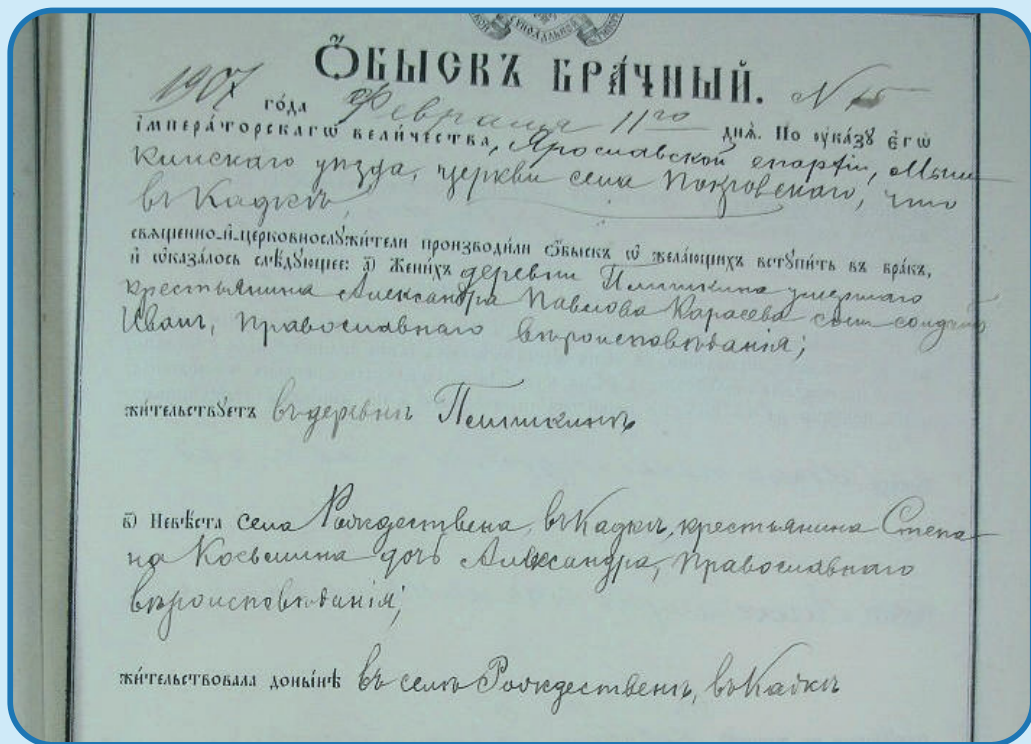 СѴНОДАЛЬНОЙ
ѺБЫСКЪ БРА́ЧНЫЙ.
1907 го́да Февраля 11го дня̀. По ᲂу҆ка́зꙋ є҆гѡ̀ №
і҆мпера́торскагѡ вели́чества, Ярославской епархіи, Мыш-
кинскаго уѣзда, церкви села Покровскаго, что
въ Кадкѣ
свѧще́нно-и҆-церковнослꙋжи́тели производи́ли ѻ҆́быскъ ѡ҆ жела́ющихъ встꙋпи́ть въ бра́къ,
и҆ ѡ҆каза́лось слѣ́дꙋющее: а҃) Жени́хъ деревни умершаго
крестьянина Александра Павлова Карасева сынъ солдатъ
Иванъ, Православнаго вѣроисповѣданія;
жи́тельствꙋетъ въ деревнѣ
в҃) Невѣ́ста села Рождествена, въ Кадкѣ, крестьянина Степа-
на Косьмина дочь Александра, Православнаго
вѣроисповѣданія;
жи́тельствовала доны́нѣ въ селѣ Рождественѣ, въ Кадкѣ